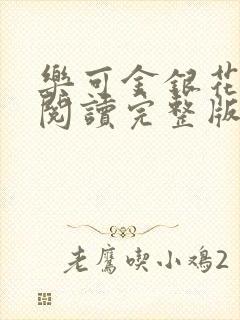 樂可金銀花
閱讀完整版
老鷹喫小鸡2